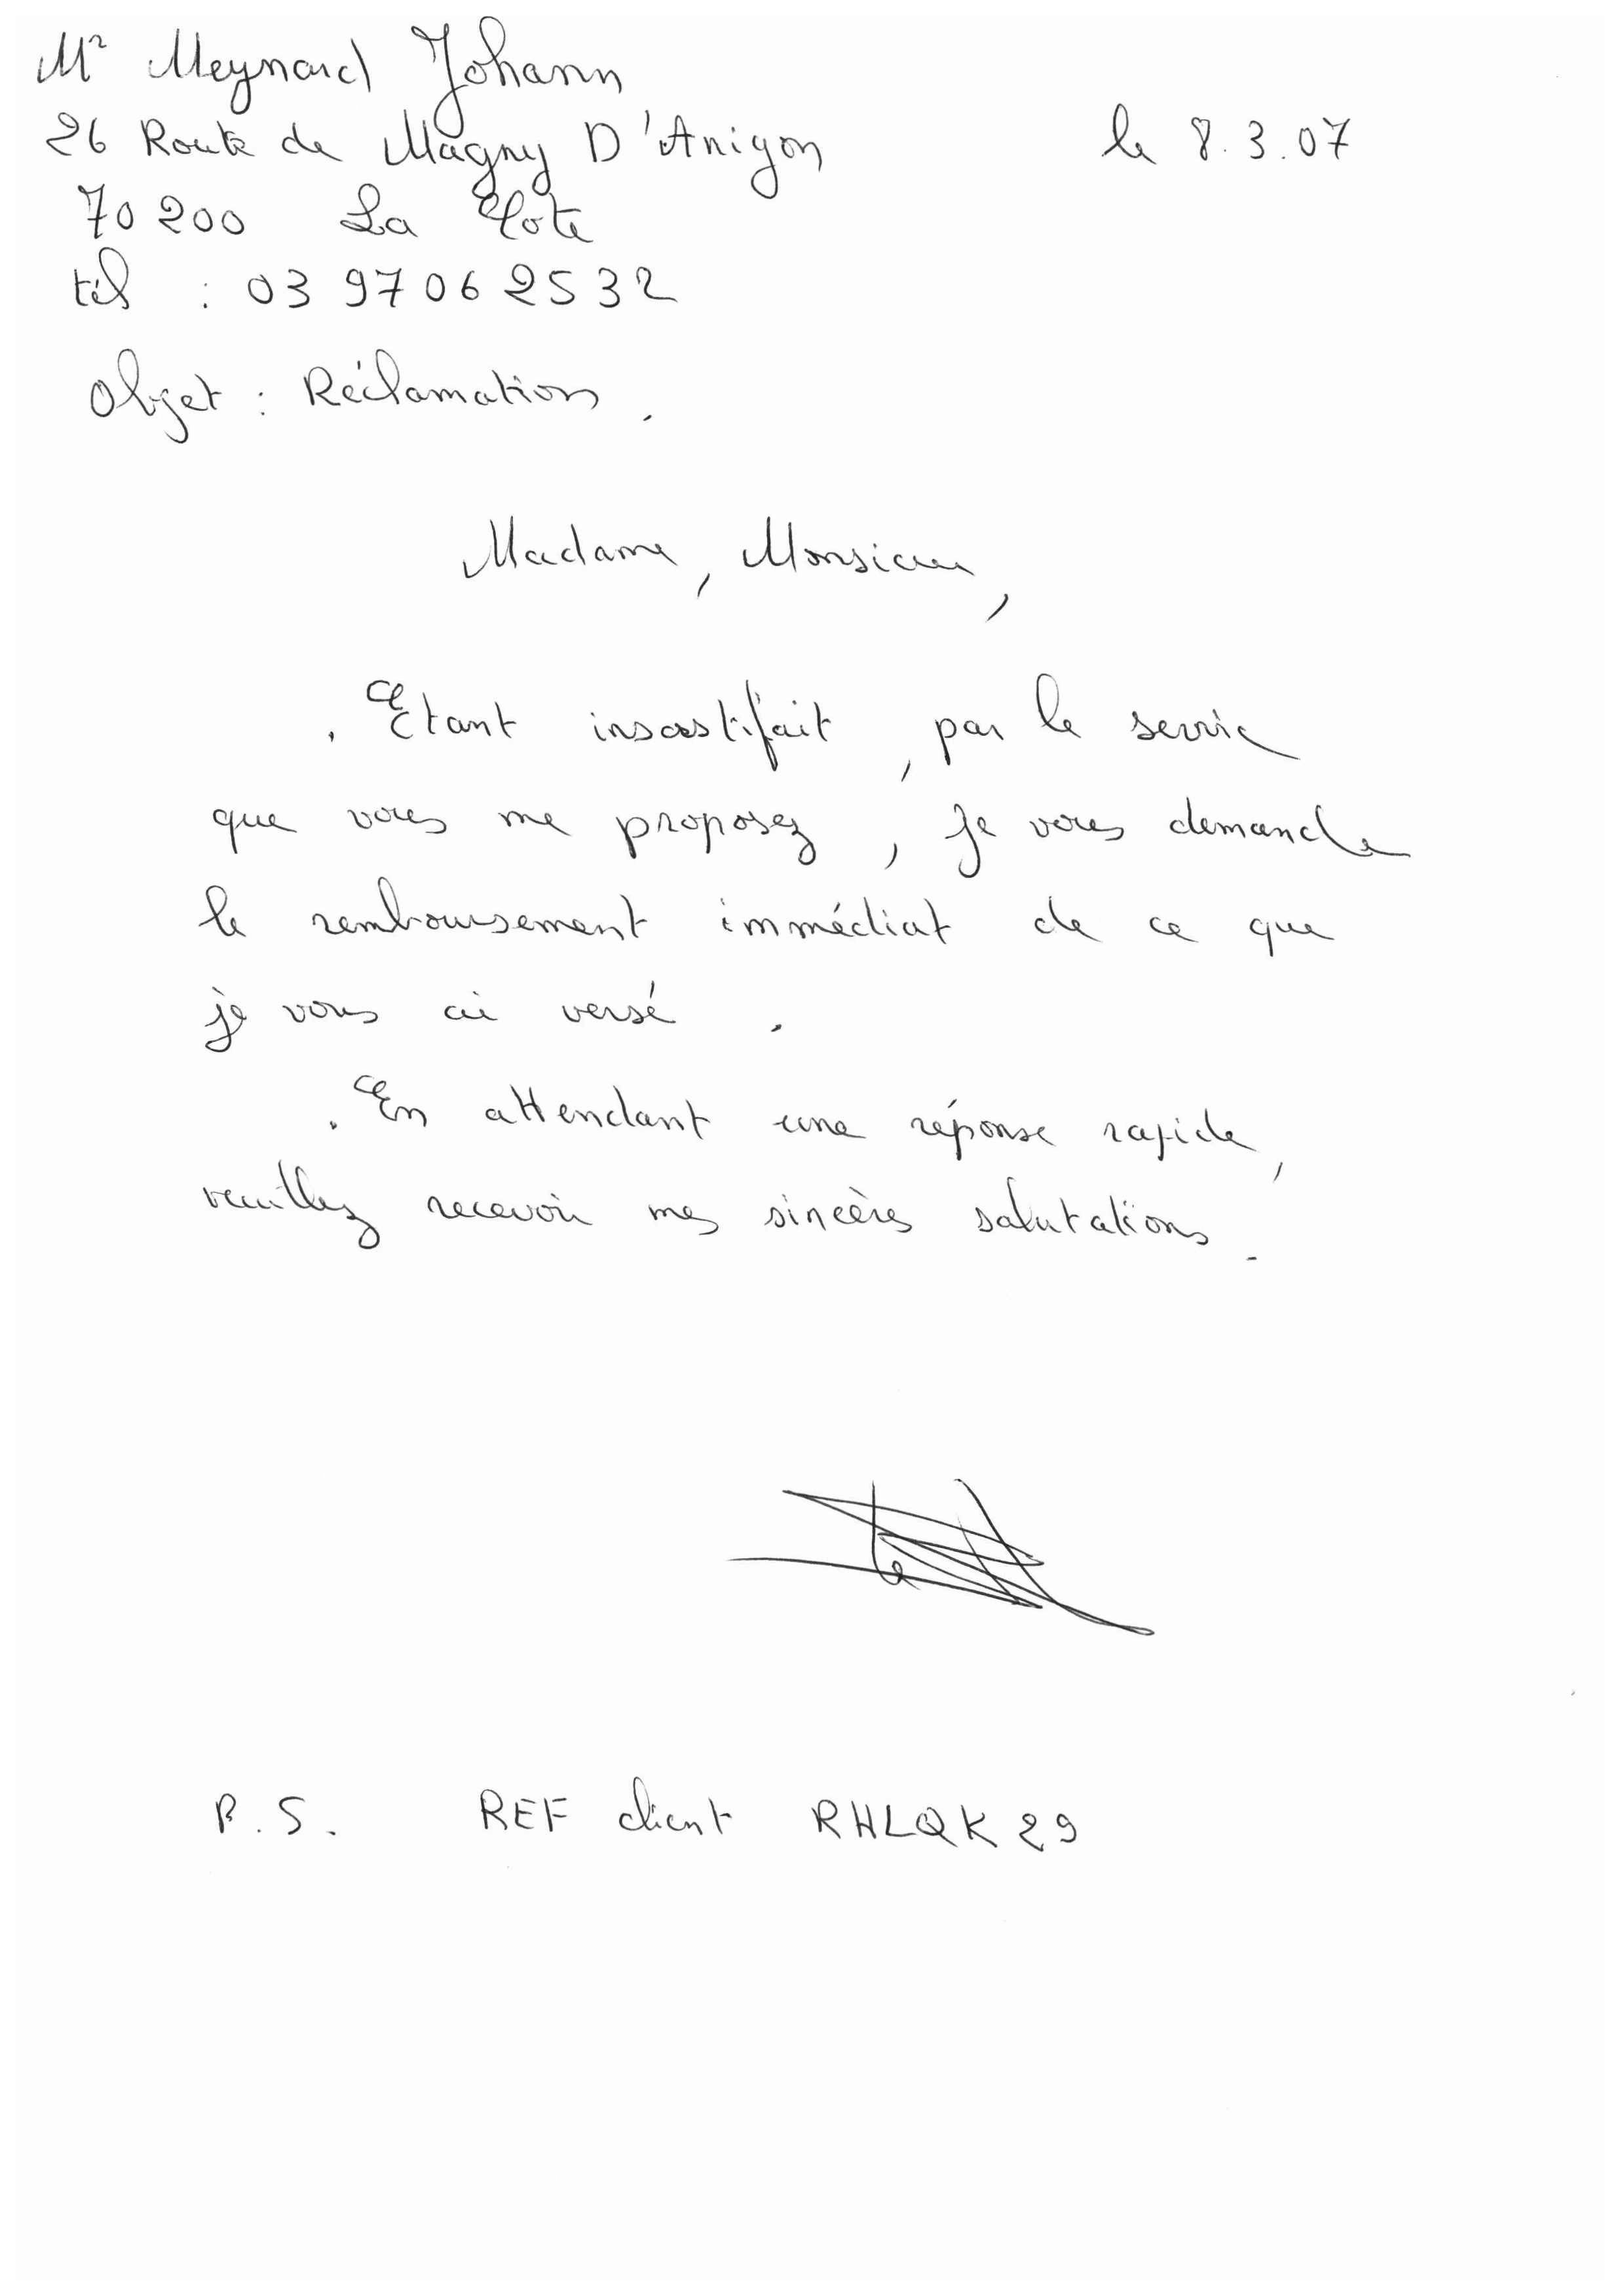 Mr Meynard Johann
26 Route de Magny D'Anigon
le 8.3.07
70 200 La Cote
tél : 03 97 06 25 32
Objet : Réclamation.
Madame, Monsieur,
. Etant insastifait, par le servic
que vous me proposez, je vous demande
le remboursement immédiat de ce que
je vous ai versé.
. En attendant une réponse rapide,
veuillez recevoir mes sincères salutations.
P.S. REF client RHLQK29